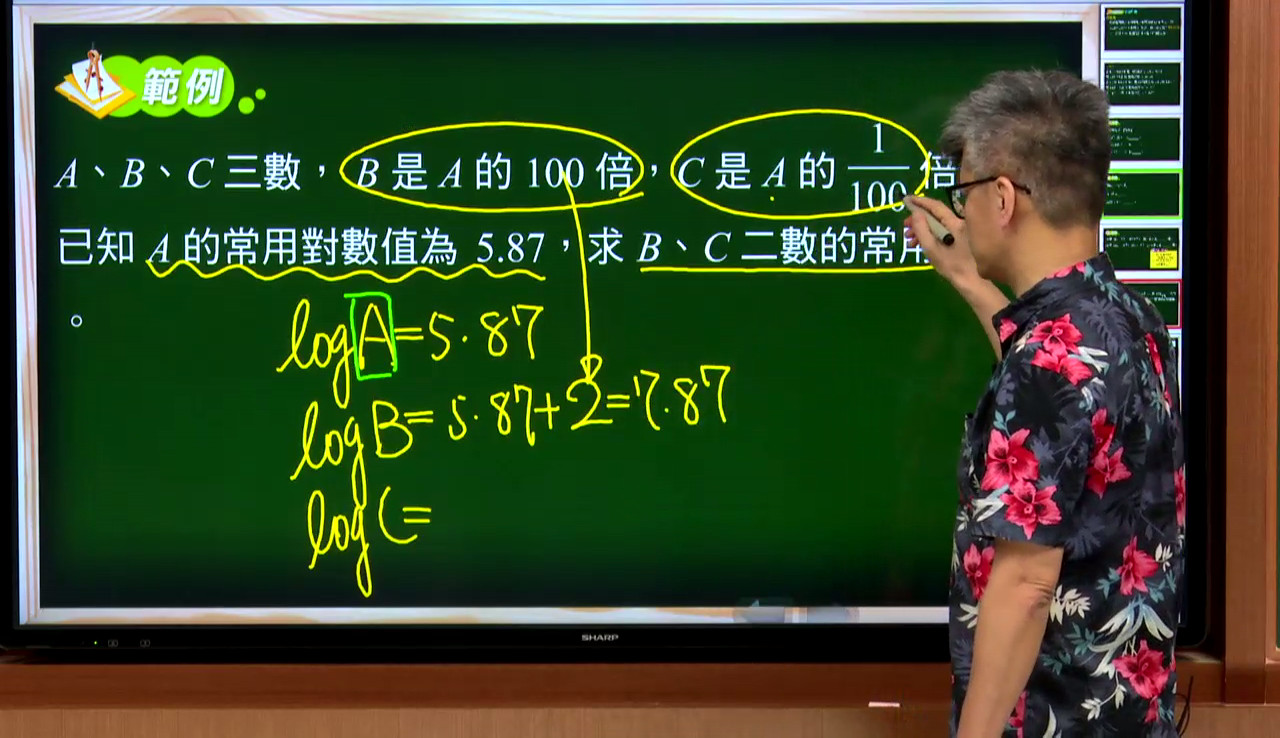 範例
A、B、C 三數，B 是 A 的 100 倍，C 是 A 的 1/100 倍
已知 A 的常用對數值為 5.87，求 B、C 二數的常用
。
log A = 5.87
log B = 5.87 + 2 = 7.87
log C =
SHARP